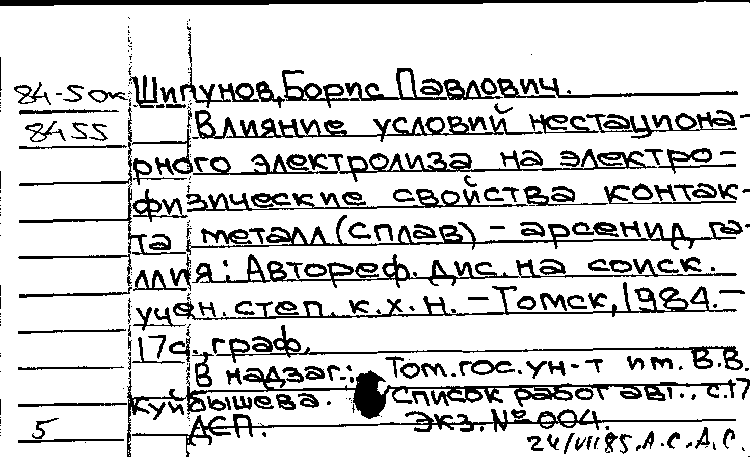 84-5 ок Шипунов, Борис Павлович.
8455 Влияние условий нестациона-
рного электролиза на электро-
физические свойства контак-
та металл (сплав) - арсенид га-
ллия: Автореф. дис. на соиск.
учен. степ. к.х.н. - Томск, 1984. -
17с., граф.
В надзаг.: Том. гос. ун-т им. В.В.
Куйбышева. Список работ авт.: с.17
5 ДСП. Экз. № 004.
24/VII 85. А.С.А.С.